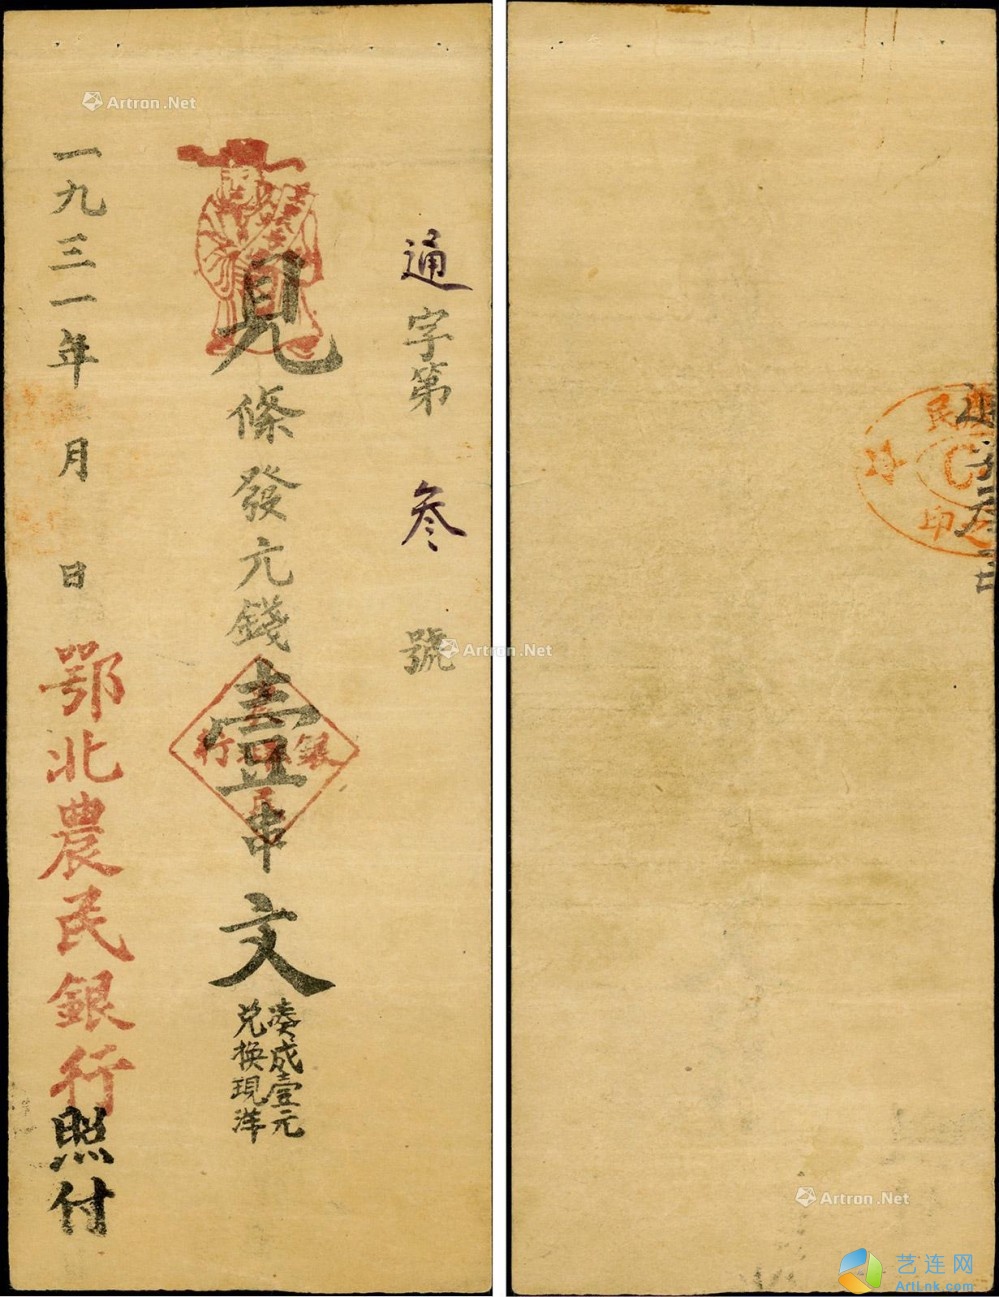 通字第叁號
見條發元錢壹串文
湊成壹元
兑換現洋
一九三一年 月 日
鄂北農民銀行照付
銀
行
民
印
Artron.Net
Artron.Net
Artron.Net
艺连网
ArtLnk.com